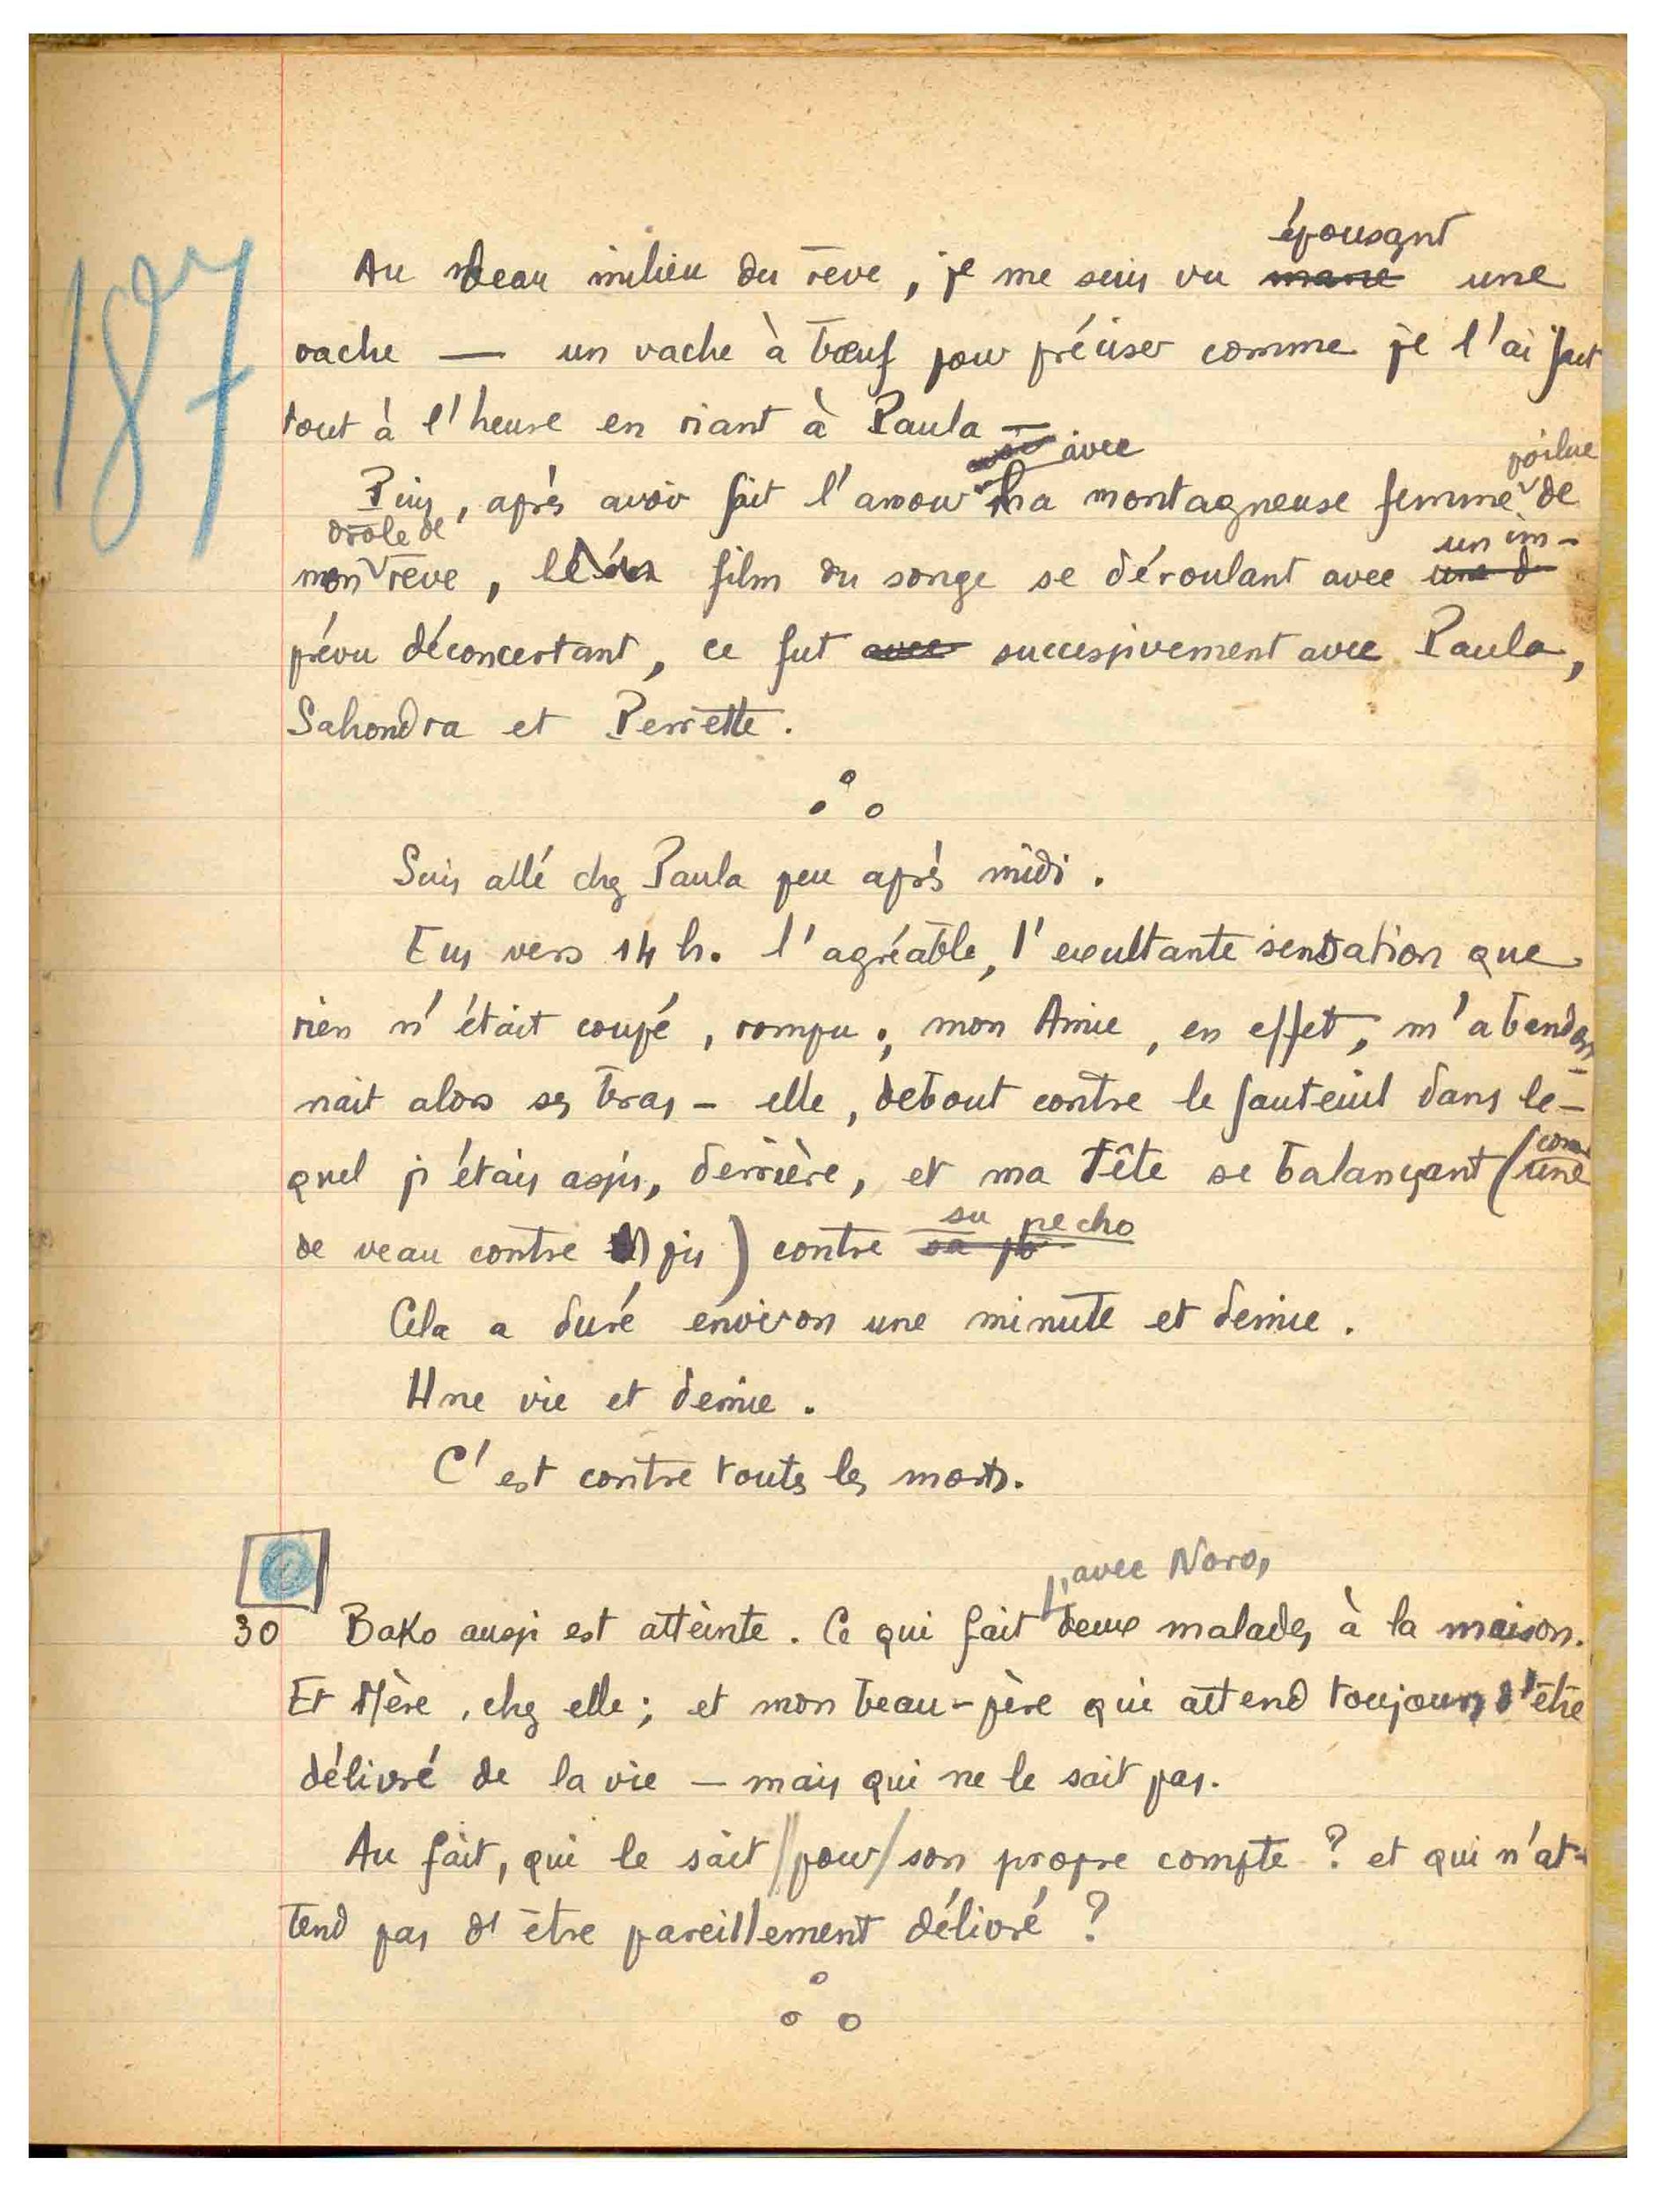 187
épousant
Au beau milieu du rêve, je me suis vu marié une
vache — un vache à bœuf pour préciser comme je l'ai fait
tout à l'heure en riant à Paula —
avec poilue
Puis, après avoir fait l'amour ma montagneuse femme de
drôle de un im-
mon rêve, le film du songe se déroulant avec une d
prévu déconcertant, ce fut avec successivement avec Paula,
Sahondra et Perrette.
Suis allé chez Paula peu après midi.
Eus vers 14 h. l'agréable, l'exultante sensation que
rien n'était coupé, rompu ; mon Amie, en effet, m'abandon-
nait alors ses bras – elle, debout contre le fauteuil dans le-
quel j'étais assis, derrière, et ma tête se balançant (une
su pecho
de veau contre pis) contre sa
Cela a duré environ une minute et demie.
Une vie et demie.
C'est contre toutes les morts.
, avec Noro,
30 Bako aussi est atteinte. Ce qui fait deux malades à la maison.
Et Mère, chez elle ; et mon beau-père qui attend toujours d'être
délivré de la vie — mais qui ne le sait pas.
Au fait, qui le sait / pour / son propre compte ? et qui n'at-
tend pas d'être pareillement délivré ?